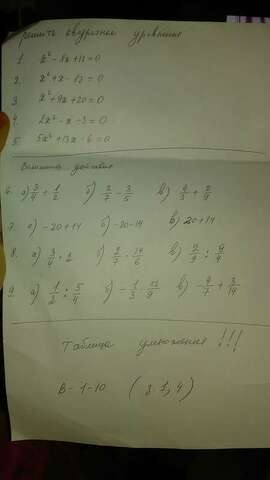 решить квадратное уравнение
1. x² - 8x + 12 = 0
2. x² + x - 12 = 0
3 x² + 9x + 20 = 0
4. 2x² - x - 3 = 0
5. 5x² + 13x - 6 = 0
Выполнить действия
6. а) 3/4 + 1/2 б) 2/7 - 3/5 в) 4/3 + 5/9
7. а) -20+14 б) -20-14 в) 20+14
8. а) 3/4 : 2 б) 2/7 : 14/6
9. а) 1/2 : 5/4 б) - 1/3 · 12/9 в) - 4/7 + 3/14
Таблица умножения !!!
В - 1-10